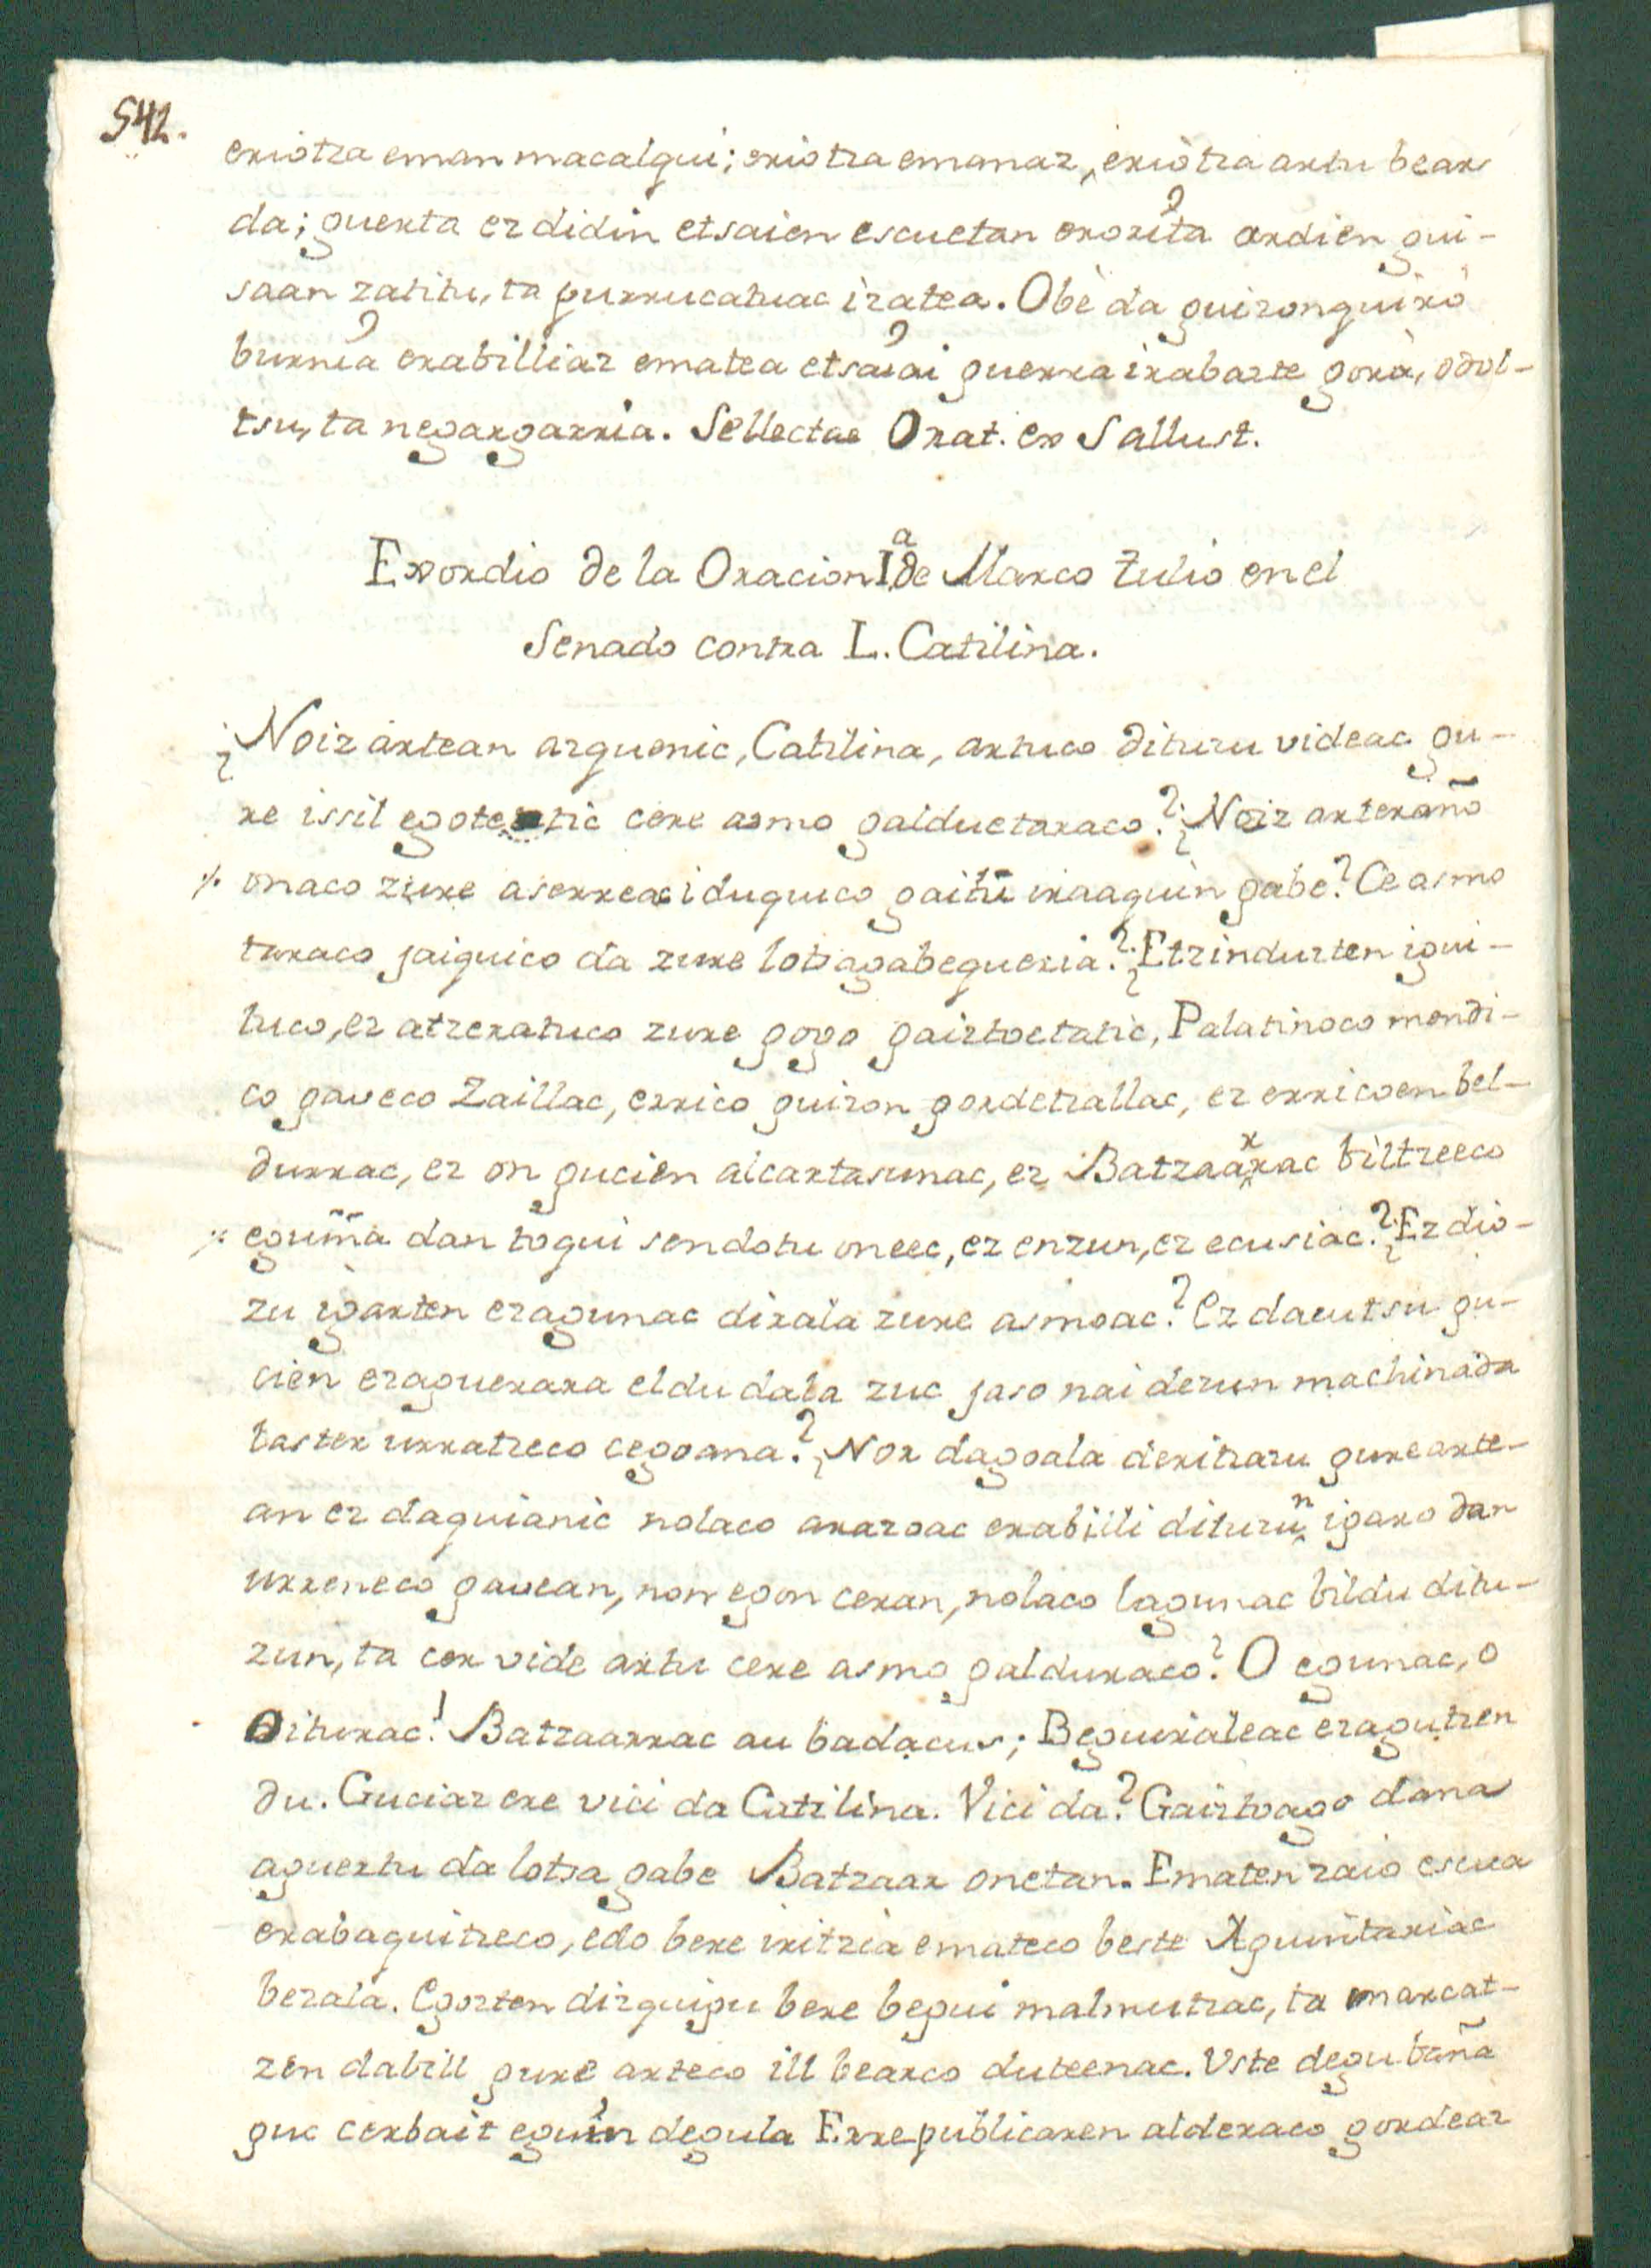 542.
eriotza eman macalqui; eriotza emanaz, eriotza artu bear
da; guerta ez didin etsaien escuetan erorita ardien gui-
saan zatitu, ta purrucatuac izatea. Obè da guizonquiró
burnia erabilliaz ematea etsaiai guerra irabazte gora, odol-
tsu, ta negargarria. Sellectae Orat. ex Sallust.
Exordio de la Oracion Iª de Marco Tulio en el
Senado contra L. Catilina.
¿Noiz artean arguenic, Catilina, artuco dituzu videac gu-
re issil egotetic cere asmo galduetaraco? ¿Noiz arteraño
onaco zure aserreac iduquico gaitu iraaquin gabe? Ce asmo
taraco jaiguico da zure lotsagabegueria? ¿Etzindurten igui-
tuco, ez atzeratuco zure gogo gaiztoetatic, Palatinoco mendi-
co gaveco Zaillac, errico guizon gordetzallac, ez erricoen bel-
durrac, ez on gucien alcartasunac, ez Batzaarrac biltzeeco
eguiña dan toqui sendotu oneec, ez enzun, ez ecusiac? ¿Ez dio-
zu igarten ezagunac dirala zure asmoac? Ez dacutsu gu-
cien ezaguerara eldu dala zuc jaso nai dezun machinada
taster urratzeco cegoana? ¿Nor dagoala deritzazu gure arte-
an ez daquianic nolaco arazoac erabilli dituzun igaro dan
urreneco gauean, non egon ceran, nolaco lagunac bildu ditu-
zun, ta cer vide artu cere asmo galduraco? O egunac, o
oiturac! Batzaarrac au badacus; Beguiraleac ezagutzen
du. Guciaz ere vici da Catilina. Vici da? Gaiztoago dana
aguertu da lotsa gabe Batzaar onetan. Ematen zaio escua
erabaguitzeco, edo bere iritzia emateco beste Aguintariac
bezala. Egozten dizquigu bere begui malmutzac, ta marcat-
zen dabill gure arteco ill bearco duteenac. Uste degu baña
guc cerbait eguin degula Errepublicaren alderaco gordeaz